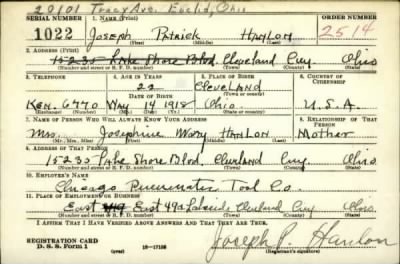 20101 Tracy Ave. Euclid, Ohio
SERIAL NUMBER 1. NAME (Print) ORDER NUMBER
1022 JOSEPH PATRICK HANLON 2514
(First) (Middle) (Last)
2. ADDRESS (Print)
15235 Lake Shore Blvd. Cleveland Cuy. Ohio
(Number and street or R. F. D. number) (Town) (County) (State)
3. TELEPHONE 4. AGE IN YEARS 5. PLACE OF BIRTH 6. COUNTRY OF CITIZENSHIP
22 CLEVELAND
DATE OF BIRTH (Town or county)
KEN. 6770 MAY 14 1918 Ohio. U.S.A.
(Exchange) (Number) (Mo.) (Day) (Yr.) (State or country)
7. NAME OF PERSON WHO WILL ALWAYS KNOW YOUR ADDRESS 8. RELATIONSHIP OF THAT PERSON
Mrs. Josephine Mary HANLON Mother
(Mr., Mrs., Miss) (First) (Middle) (Last)
9. ADDRESS OF THAT PERSON
15235 Lake Shore Blvd. Cleveland Cuy. Ohio.
(Number and street or R. F. D. number) (Town) (County) (State)
10. EMPLOYER'S NAME
Chicago Pneumatic Tool Co.
11. PLACE OF EMPLOYMENT OR BUSINESS
East 49 East 49 Lakeside Cleveland Cuy Ohio.
(Number and street or R. F. D. number) (Town) (County) (State)
I AFFIRM THAT I HAVE VERIFIED ABOVE ANSWERS AND THAT THEY ARE TRUE.
REGISTRATION CARD
D. S. S. Form 1 (over) 16—17105 Joseph P. Hanlon
(Registrant's signature)